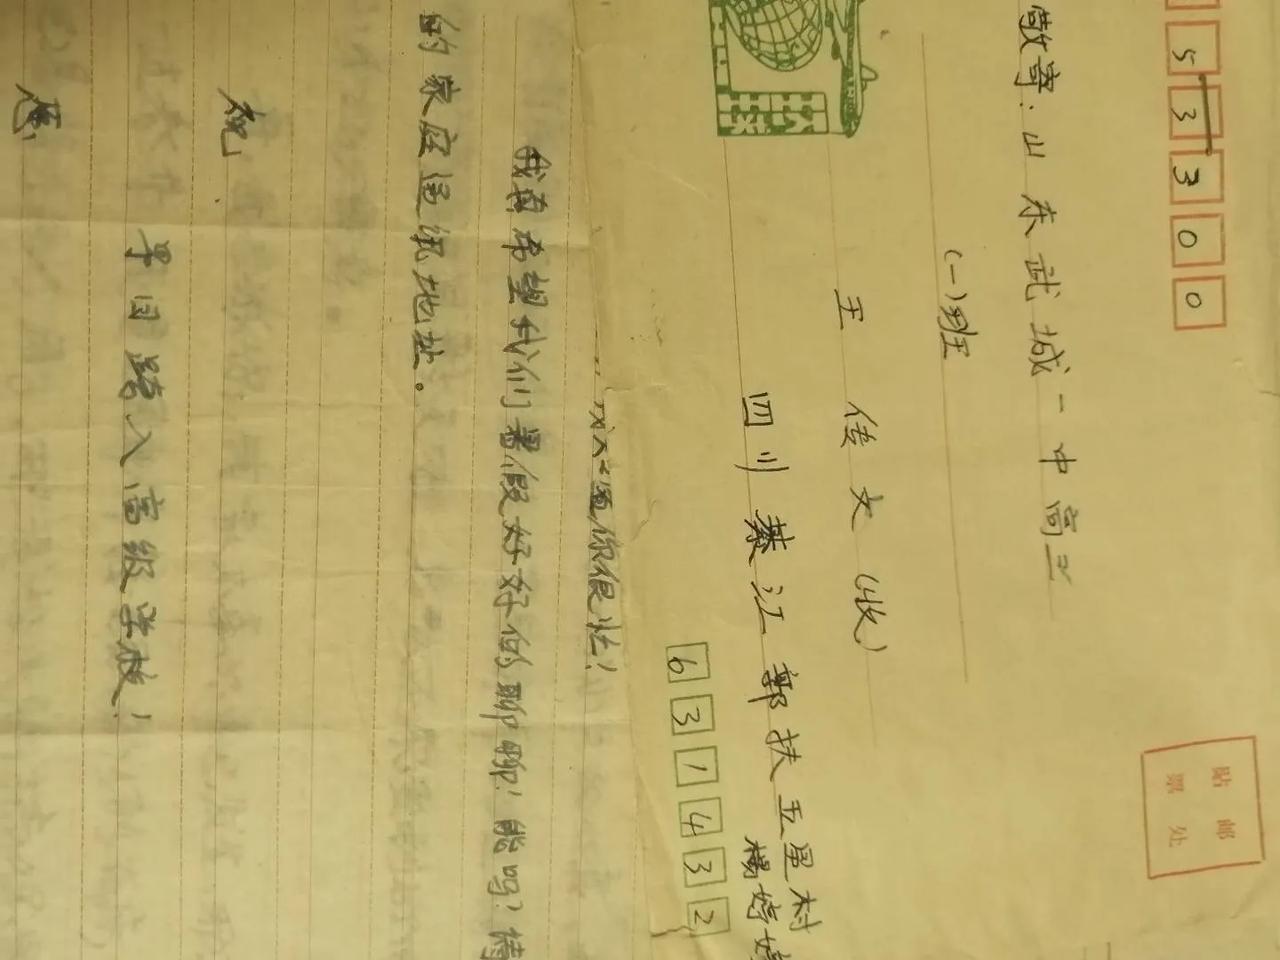 53300
敬寄:山东武城一中高三
(一)班
王传文(收)
四川綦江郭扶五星村
杨婷婷
631432
贴邮
票处
你很忙!
我真希望我们暑假好好的聊聊!能吗?请
的家庭通讯地址。
祝
早日跨入高级学校!